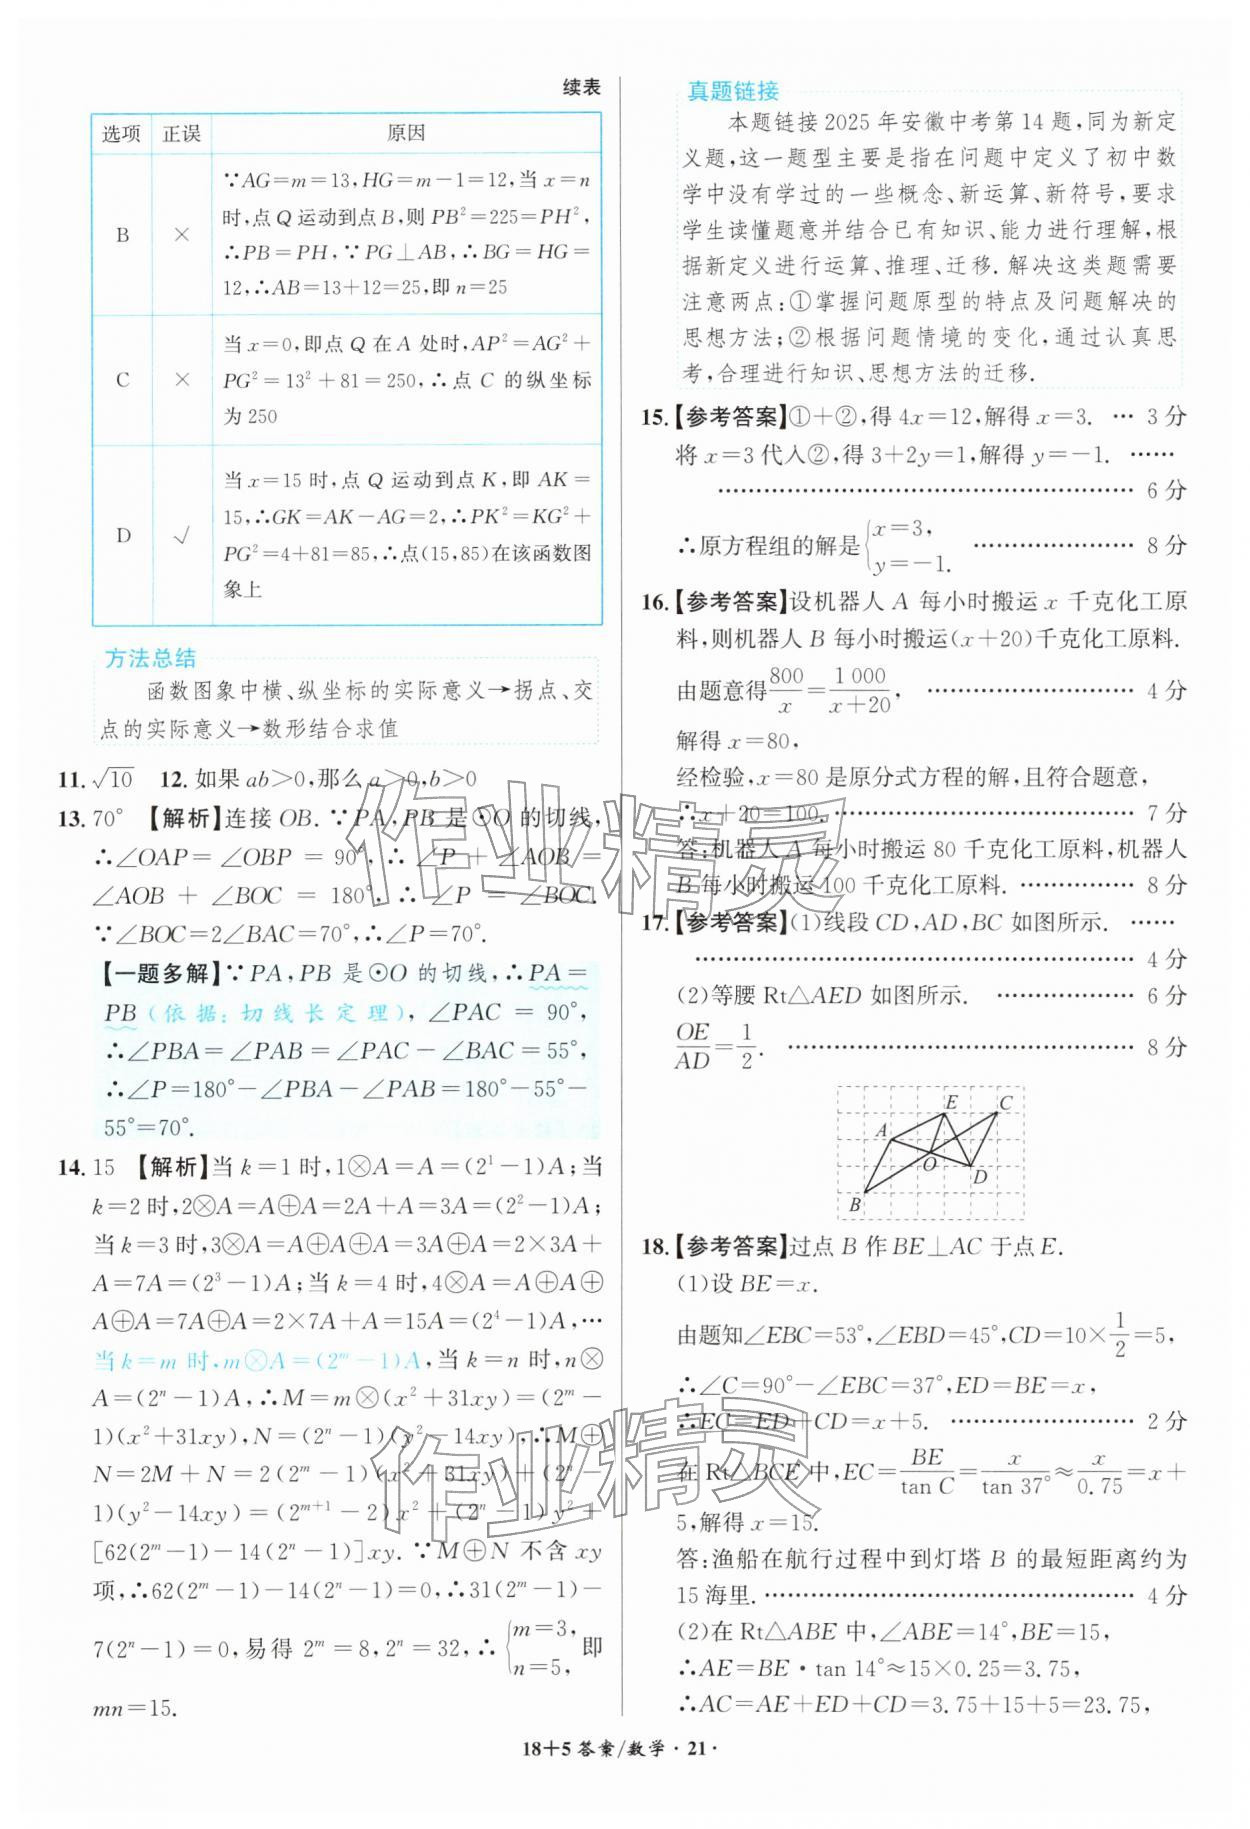 续表
选项 正误 原因
B × ∵AG=m=13,HG=m-1=12,当 x=n
时,点 Q 运动到点 B,则 PB²=225=PH²,
∴PB=PH,∵PG⊥AB,∴BG=HG=
12,∴AB=13+12=25,即 n=25
C × 当 x=0,即点 Q 在 A 处时,AP²=AG²+
PG²=13²+81=250,∴点 C 的纵坐标
为 250
D √ 当 x=15 时,点 Q 运动到点 K,即 AK=
15,∴GK=AK-AG=2,∴PK²=KG²+
PG²=4+81=85,∴点(15,85)在该函数图
象上
方法总结
函数图象中横、纵坐标的实际意义→拐点、交
点的实际意义→数形结合求值
11.√10 12.如果 ab>0,那么 a>0,b>0
13.70° 【解析】连接 OB.∵PA,PB 是⊙O 的切线,
∴∠OAP=∠OBP=90°,∴∠P+∠AOB=
∠AOB+∠BOC=180°,∴∠P=∠BOC.
∵∠BOC=2∠BAC=70°,∴∠P=70°.
【一题多解】∵PA,PB 是⊙O 的切线,∴PA=
PB(依据:切线长定理),∠PAC=90°,
∴∠PBA=∠PAB=∠PAC-∠BAC=55°,
∴∠P=180°-∠PBA-∠PAB=180°-55°-
55°=70°.
14.15 【解析】当 k=1 时,1⊗A=A=(2¹-1)A;当
k=2 时,2⊗A=A⊕A=2A+A=3A=(2²-1)A;
当 k=3 时,3⊗A=A⊕A⊕A=3A⊕A=2×3A+
A=7A=(2³-1)A;当 k=4 时,4⊗A=A⊕A⊕
A⊕A=7A⊕A=2×7A+A=15A=(2⁴-1)A,…
当 k=m 时,m⊗A=(2ᵐ-1)A,当 k=n 时,n⊗
A=(2ⁿ-1)A,∴M=m⊗(x²+31xy)=(2ᵐ-
1)(x²+31xy),N=(2ⁿ-1)(y²-14xy),∴M⊕
N=2M+N=2(2ᵐ-1)(x²+31xy)+(2ⁿ-
1)(y²-14xy)=(2ᵐ⁺¹-2)x²+(2ⁿ-1)y²+
[62(2ᵐ-1)-14(2ⁿ-1)]xy.∵M⊕N 不含 xy
项,∴62(2ᵐ-1)-14(2ⁿ-1)=0,∴31(2ᵐ-1)-
7(2ⁿ-1)=0,易得 2ᵐ=8,2ⁿ=32,∴{m=3, n=5,即
mn=15.
真题链接
本题链接 2025 年安徽中考第 14 题,同为新定
义题,这一题型主要是指在问题中定义了初中数
学中没有学过的一些概念、新运算、新符号,要求
学生读懂题意并结合已有知识、能力进行理解,根
据新定义进行运算、推理、迁移.解决这类题需要
注意两点:①掌握问题原型的特点及问题解决的
思想方法;②根据问题情境的变化,通过认真思
考,合理进行知识、思想方法的迁移.
15.【参考答案】①+②,得 4x=12,解得 x=3. … 3 分
将 x=3 代入②,得 3+2y=1,解得 y=-1. ……
………………………………………… 6 分
∴原方程组的解是{x=3, y=-1. ……………… 8 分
16.【参考答案】设机器人 A 每小时搬运 x 千克化工原
料,则机器人 B 每小时搬运(x+20)千克化工原料.
由题意得 800/x=1 000/(x+20), …………………… 4 分
解得 x=80,
经检验,x=80 是原分式方程的解,且符合题意,
∴x+20=100. ……………………………… 7 分
答:机器人 A 每小时搬运 80 千克化工原料,机器人
B 每小时搬运 100 千克化工原料. ………… 8 分
17.【参考答案】(1)线段 CD,AD,BC 如图所示. ……
…………………………………………… 4 分
(2)等腰 Rt△AED 如图所示. …………… 6 分
OE/AD=1/2. ………………………………… 8 分
E C
A
O
D
B
18.【参考答案】过点 B 作 BE⊥AC 于点 E.
(1)设 BE=x.
由题知∠EBC=53°,∠EBD=45°,CD=10×1/2=5,
∴∠C=90°-∠EBC=37°,ED=BE=x,
∴EC=ED+CD=x+5. ………………… 2 分
在 Rt△BCE 中,EC=BE/tan C=x/tan 37°≈x/0.75=x+
5,解得 x=15.
答:渔船在航行过程中到灯塔 B 的最短距离约为
15 海里. …………………………………… 4 分
(2)在 Rt△ABE 中,∠ABE=14°,BE=15,
∴AE=BE·tan 14°≈15×0.25=3.75,
∴AC=AE+ED+CD=3.75+15+5=23.75,
18+5 答案/数学·21·
作业精灵
作业精灵